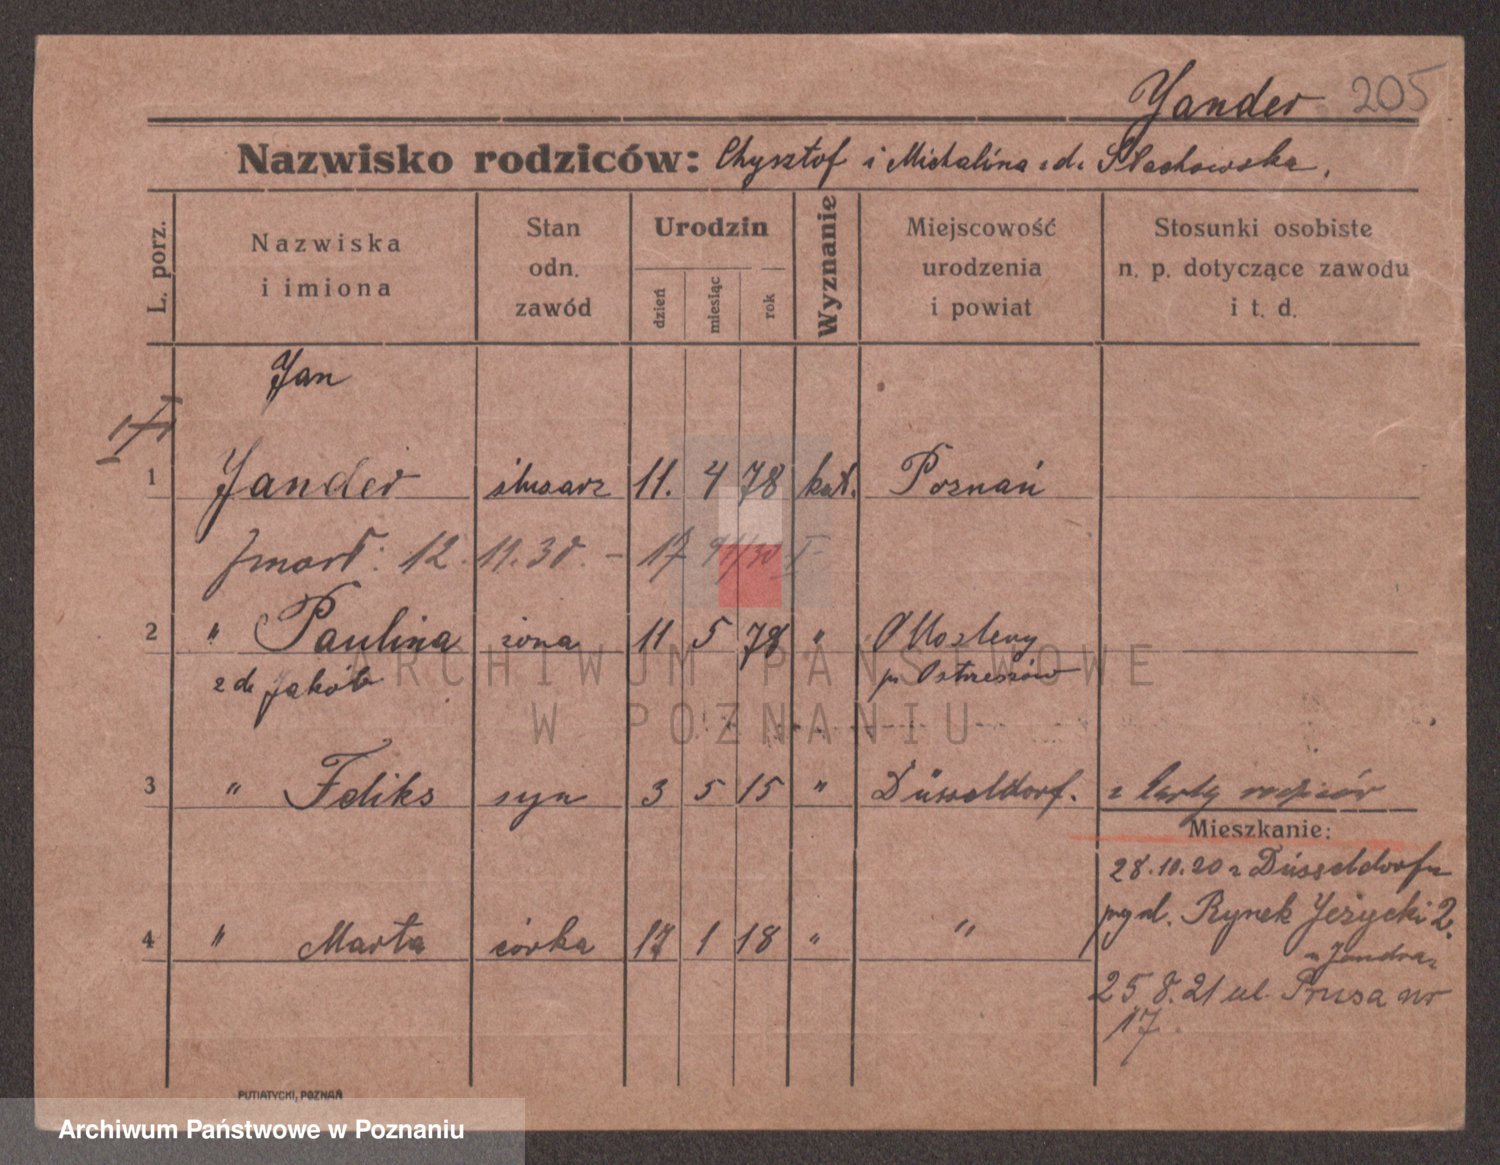 Yander 205
Nazwisko rodziców: Chysztof i Michalina z d. Stachowska.
L. porz.
Nazwiska
i imiona
Stan
odn.
zawód
Urodzin
dzień
miesiąc
rok
Wyznanie
Miejscowość
urodzenia
i powiat
Stosunki osobiste
n. p. dotyczące zawodu
i t. d.
Jan
1 Yander ślusarz 11. 4 78 kat. Poznań
Zmarł: 12.11.30. -
2 " Paulina żona 11 5 78 "
z d. Jakób p. Ostrzeszów
3 " Feliks syn 3 5 15 " Düsseldorf. z karty rodziców
Mieszkanie:
28.10.20 z Düsseldorfu
4 " Marta córka 17 1 18 " "
Rynek Jeżycki 2.
25.8.21 ul. Prusa nr
17.
PUTIATYCKI, POZNAŃ
ARCHIWUM PAŃSTWOWE
W POZNANIU
Archiwum Państwowe w Poznaniu